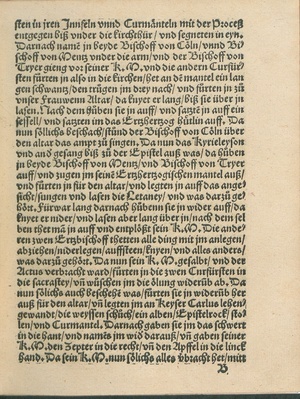 sten in jren Jnnfeln vnnd Curmänteln mit der Proceß
entgegen biß vnder die kirchthür / vnd segneten in eyn.
Darnach namē jn beyde Bischoff von Cöln / vnnd Bi-
schoff von Mentz vnder die arm / vnd der Bischoff von
Tryer gieng vor seiner K. M. vnd die andern Curfür-
sten fürten jn also in die kirchen / het an dē mantel ein lan
gen schwantz / den trügen jm / vnd fürten jn zů
vnser Frauwenn Altar / da knyet er lang / biß sie über jn
lasen. Nach dem hůben sie jn auff / vnd satztē jn auff ein
sessell / vnd satzten im das Ertzhertzog hůtlin auff. Da
nun söllichs beschach / stůnd der Bischoff von Cöln über
den altar das ampt zů singen. Da nun das Kyrieleyson
vnd and gesang biß zů der Epistel auß was / da hůben
jn beyde Bischoff von Mentz / vnd Bischoff von Tryer
auff / vnd zugen jm seinē Ertzhertzogischen mantel auß /
vnd fürten jn für den altar / vnd legten jn auff das ange-
sicht / sungen vnd lasen die Letaney / vnd was darzů ge-
hört. Fürwar lang darnach hůben sie jn wider auff / da
knyet er nider / vnd lasen aber lang über jn / nach dem sel
ben thet mā jn auff vnd entplößt sein K. M. Die ande
ren zwen Ertzbischoff thetten alle ding mit jm anlegen /
abziehen / niderlegen / auffsteen / knyen / vnd alles anders /
was darzů gehört. Da nun sein K. M. gesalbt / vnd der
Actus verbracht ward / fürten in die zwen Curfürsten in
die sacrastey / vñ wüschen jm die ölung widerūb ab. Da
nun söllichs auch bescheht was / fürten sie jn widerūb her
auß für den altar / vñ legten jm an Keyser Carlus lehen
gewandt / die weyssen schůch / ein alben / Epistelrock / sto-
len / vnd Curmantel. Darnach gaben sie jm das schwert
in die hant / vnd namēs jm wid darauß / vñ gaben seiner
K. M. den Zepter in die recht / vñ den Apffel in die linck
hand. Da sein K. M. nun sölichs alles vbracht het / mitt
B